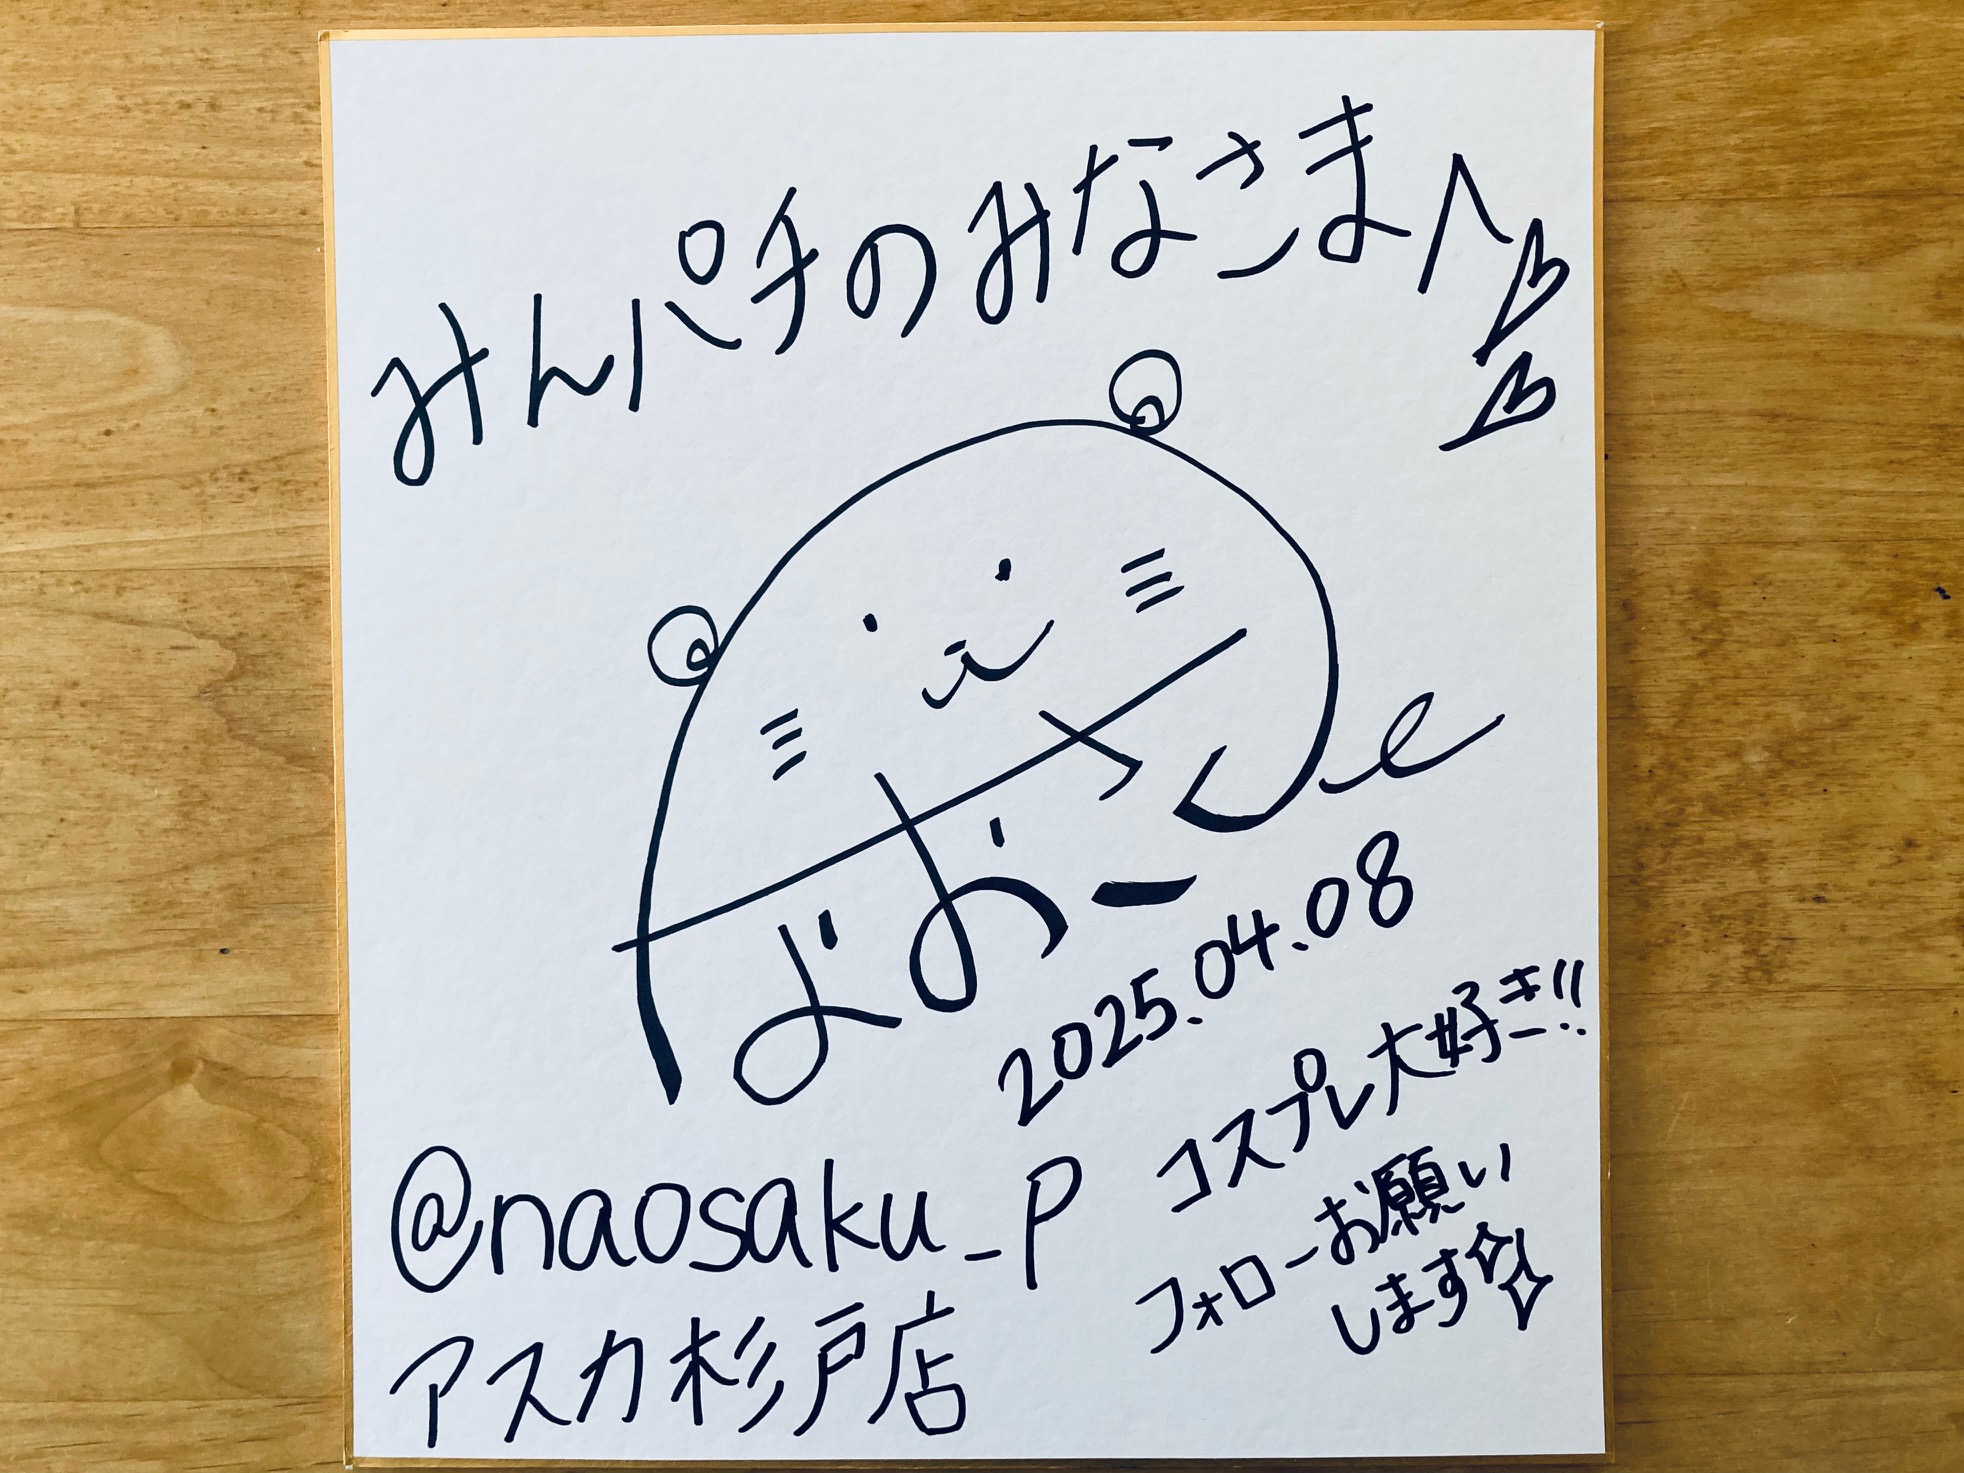 みんパチのみなさまへ
なおー
2025.04.08
コスプレ大好き!!
フォローお願い
します
@naosaku_p
アスカ杉戸店